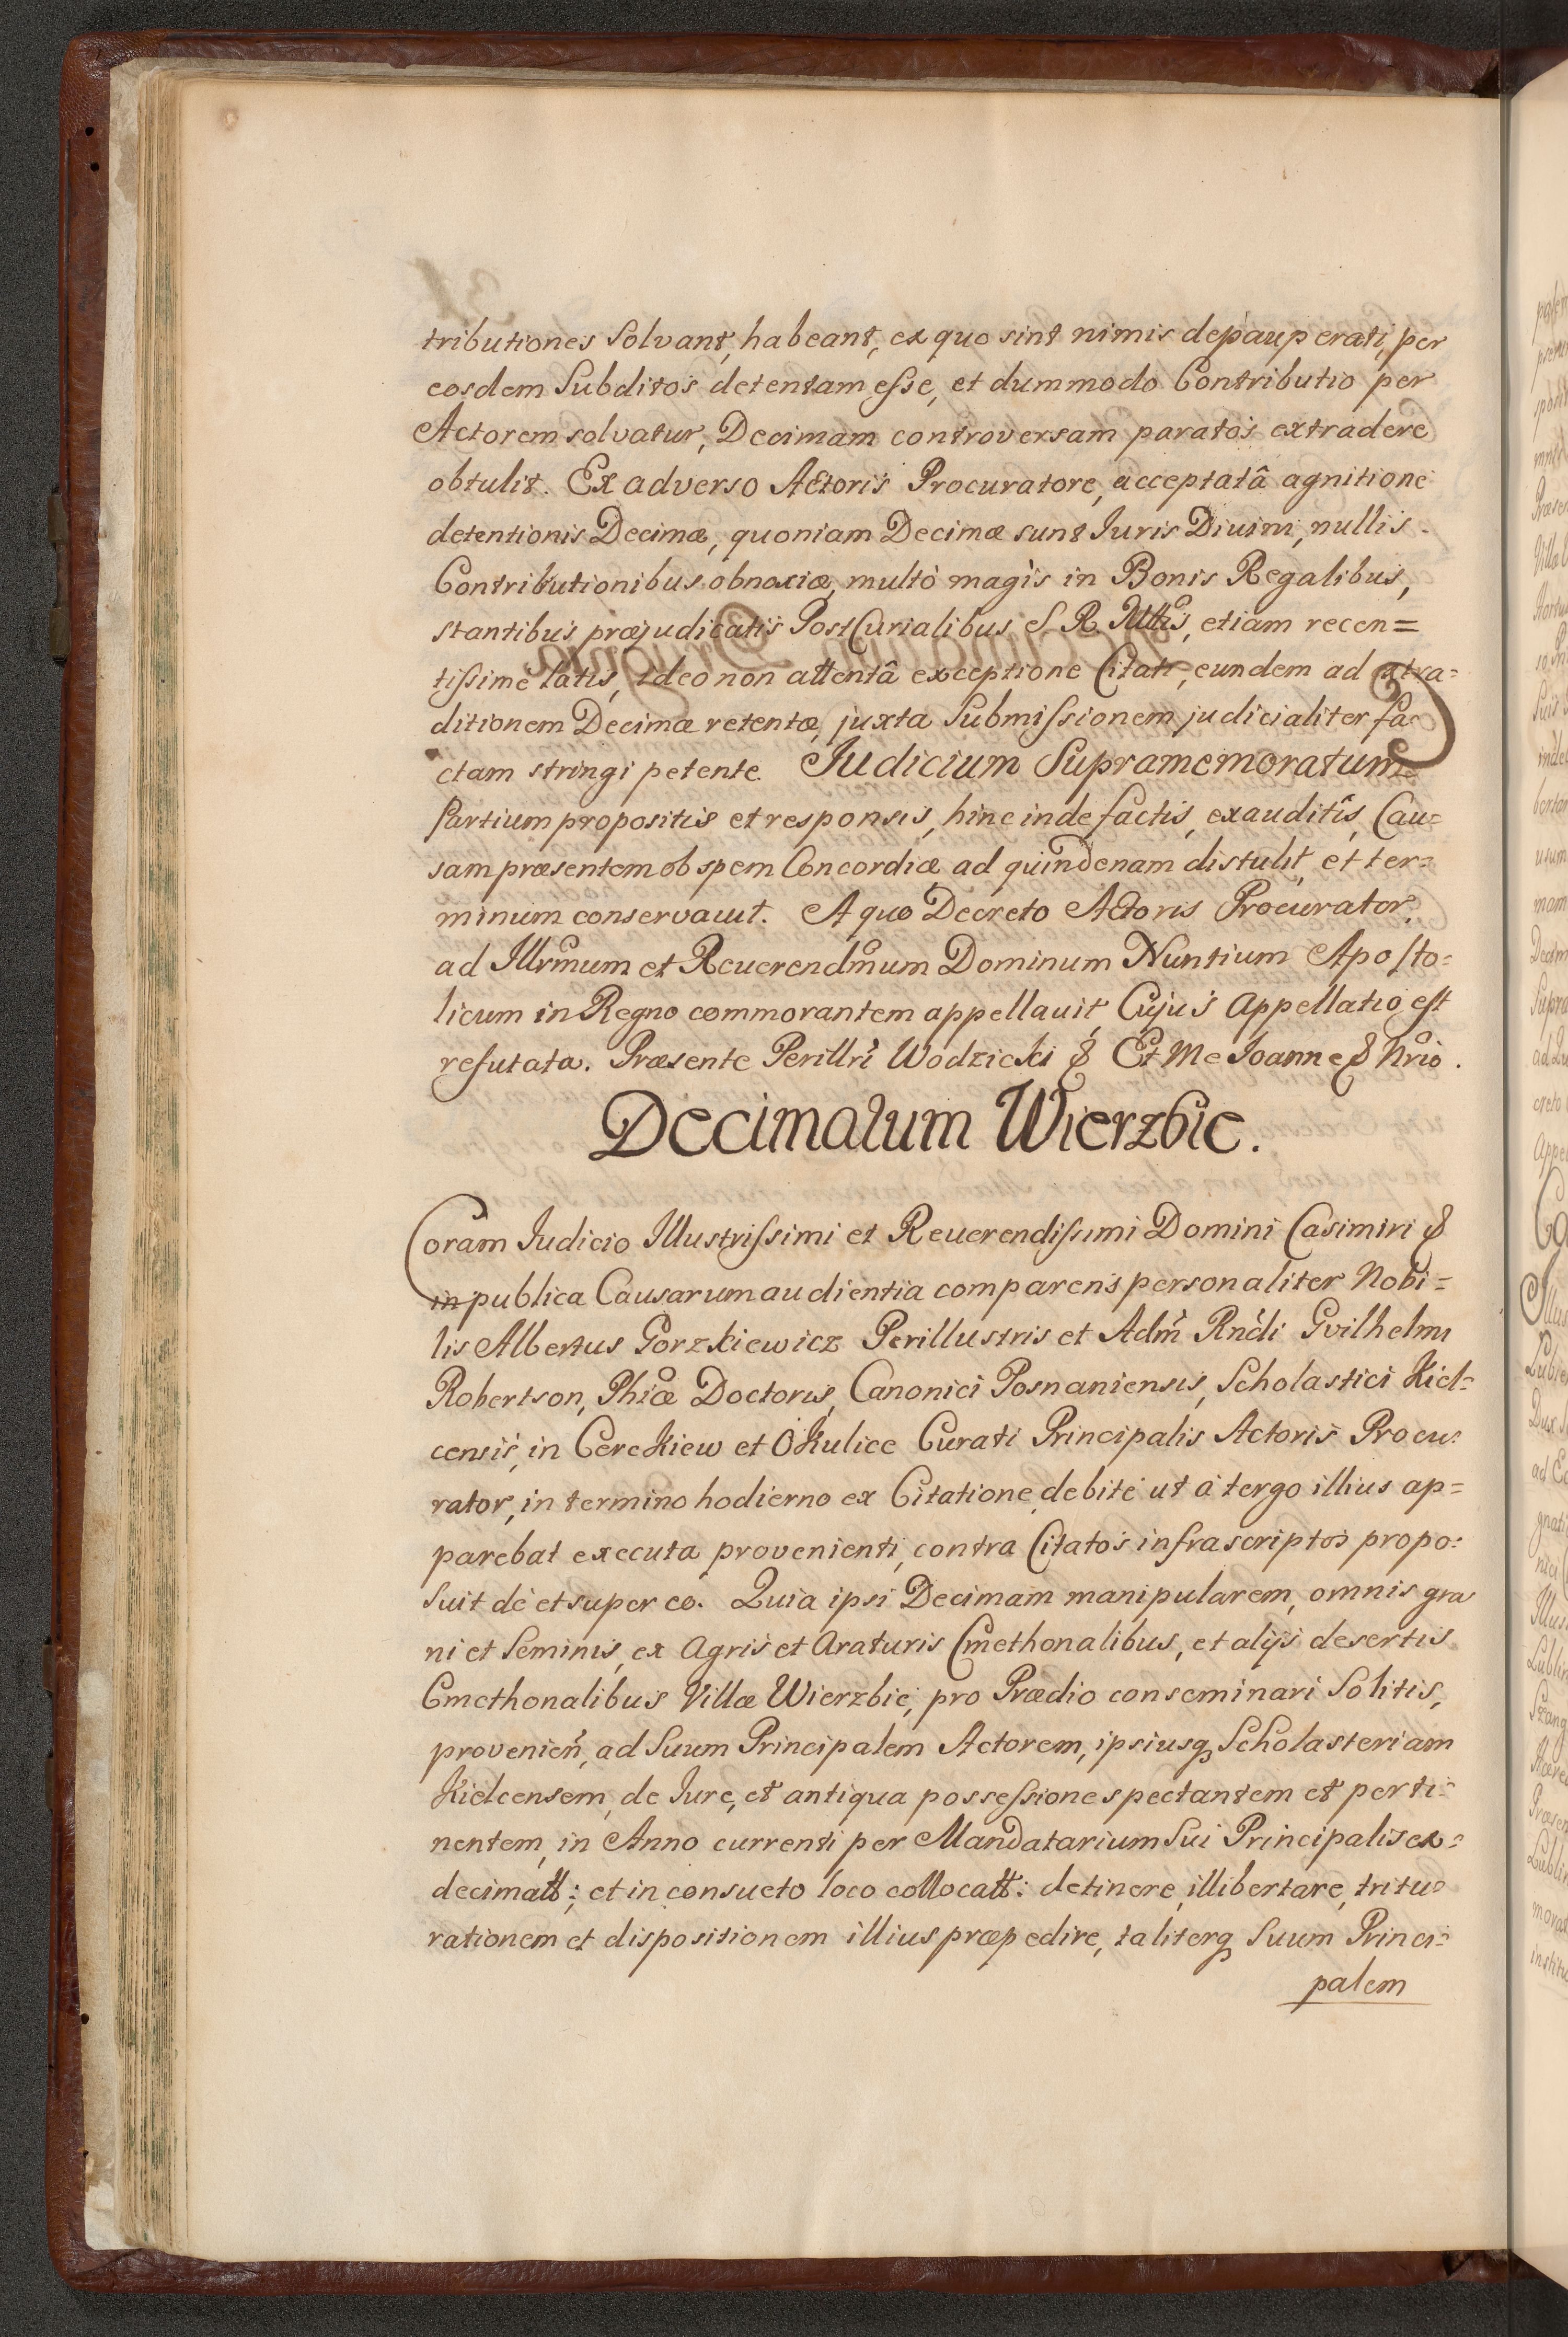 tributiones Solvant, habeant, ex quo sint nimis depauperati, per
eosdem Subditos detentam esse, et dummodo Contributio per
Actorem solvatur, Decimam controversam paratos extradere
obtulit. Ex adverso Actoris Procuratore, acceptatâ agnitione
detentionis Decimæ, quoniam Decimæ sunt Iuris Diuini, nullis
Contributionibus obnoxiæ, multò magis in Bonis Regalibus,
stantibus præjudicatis PostCurialibus S. R. Mttis, etiam recen=
tissimè latis, ideo non attentâ exceptione Citati, eundem ad extra=
ditionem Decimæ retentæ, juxta Submissionem judicialiter fa=
ctam stringi petente. Iudicium Supramemoratum
Partium propositis et responsis, hinc inde factis, exauditis, Cau=
sam præsentem ob spem Concordiæ ad quindenam distulit, et ter=
minum conservauit. A quo Decreto Actoris Procurator,
ad Illrmum et Reuerendmum Dominum Nuntium Aposto=
licum in Regno commorantem appellauit, Cujus Appellatio est
refutata. Præsente Perillri Wodzicki & Et Me Ioanne & Nrio.
Decimalum Wierzbie.
Coram Iudicio Illustrissimi et Reuerendissimi Domini Casimiri &
in publica Causarum audientia comparens personaliter Nobi=
lis Albertus Gorzkiewicz Perillustris et Adm Rndi Gvilhelmi
Robertson, Phiæ Doctoris, Canonici Posnaniensis, Scholastici Kiel=
censis, in Cerekiew et Okulice Curati Principalis Actoris Procu=
rator, in termino hodierno ex Citatione debite ut à tergo illius ap=
parebat executa provenienti, contra Citatos infrascriptos propo=
suit de et super eo. Quia ipsi Decimam manipularem, omnis gra
ni et Seminis, ex Agris et Araturis Cmethonalibus, et alijs desertis
Cmethonalibus Villæ Wierzbie, pro Prædio conseminari Solitis,
provenien, ad Suum Principalem Actorem, ipsiusq Scholasteriam
Kielcensem, de Iure, et antiqua possessione spectantem et perti=
nentem, in Anno currenti per Mandatarium Sui Principalis ex=
decimatt; et in consueto loco collocatt: detinere, illibertare, tritu=
rationem et dispositionem illius præpedire, taliterq Suum Princi=
palem